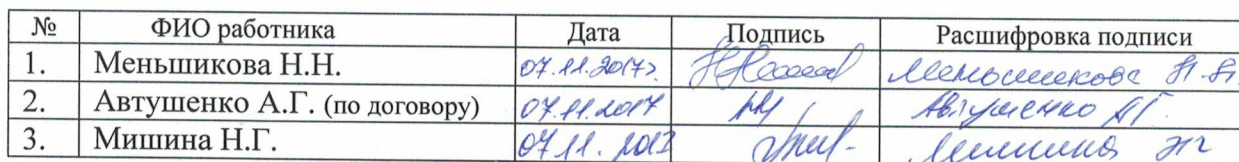 № ФИО работника Дата Подпись Расшифровка подписи
1. Меньшикова Н.Н. 07.11.2017г. Меньшикова Н.Н.
2. Автушенко А.Г. (по договору) 07.11.2017 Автушенко АГ.
3. Мишина Н.Г. 07.11.2017 Мишина НГ